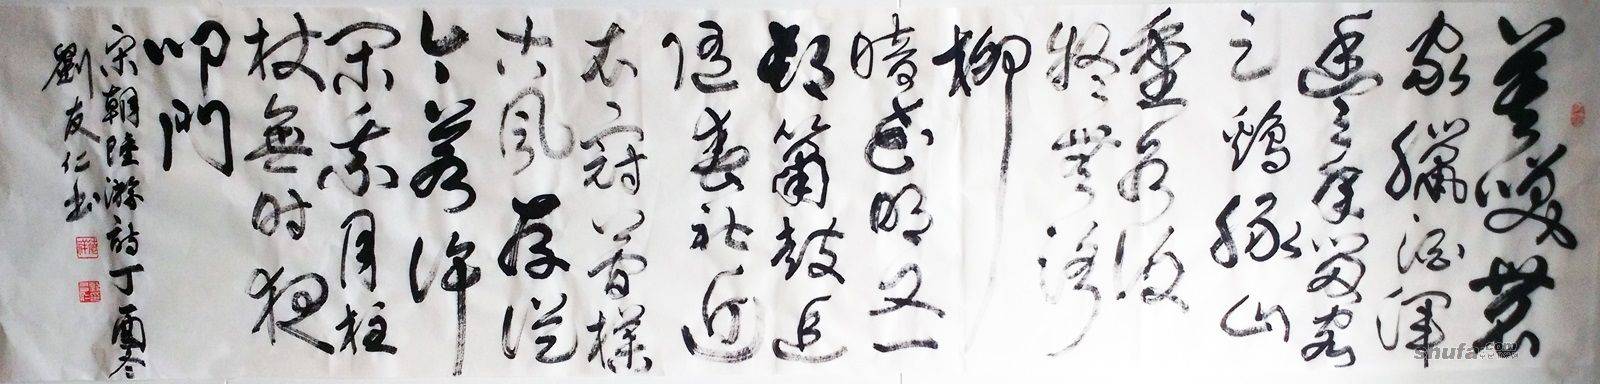 莫笑農
家臘酒渾
豐年留客
足鷄豚山
重水復
疑無路
柳
暗花明又一
邨簫鼓追
隨春社近
衣冠簡樸
古風存從
今若許
閑乘月柱
杖無时夜
叩門
宋朝陸游詩丁酉冬
劉友仁书
shufa.com